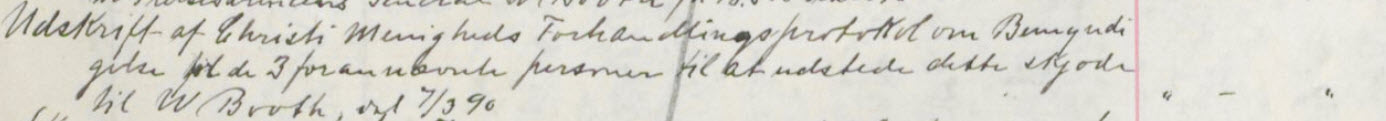 Udskrift af Christi Menigheds Forhandlingsprotokol om Bemyndi
gelse til de 3 forannævnte personer til at udstede dette skjøde
til W Booth, dgl 7/3 90 " - "